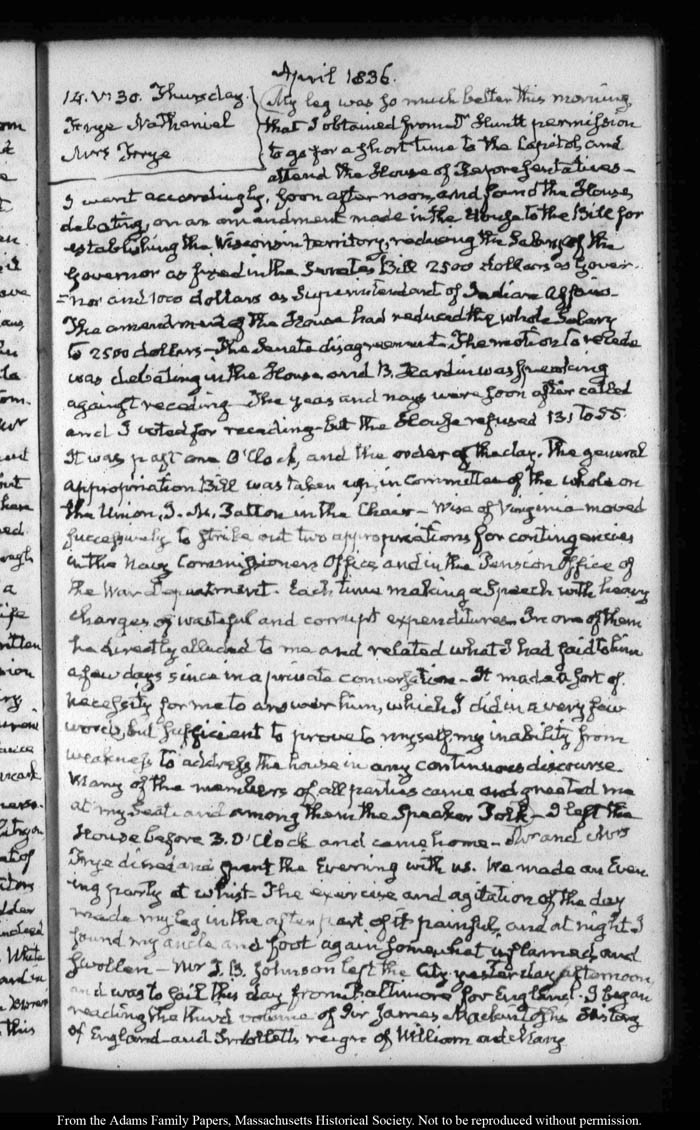 April 1836.
14. VI 30. Thursday.
Frye Nathaniel
Mrs Frye
My leg was so much better this morning,
that I obtained from Dr Huntt permission
to go for a short time to the Capitol, and
attend the House of Representatives—
I went accordingly, soon after noon, and found the House,
debating, on an amendment made in the House to the Bill for
establishing the Wisconsin territory, reducing the Salary of the
Governor as fixed in the Senates Bill 2500 dollars as Gover-
=nor and 1000 dollars as Superintendant of Indian Affairs—
The amendment of the House had reduced the whole Salary
to 2500 dollars—The Senate disagreement. The motion to recede
was debating in the House and B. Hardin was speaking
against receding—The yeas and nays were soon after called
and I voted for receding—but the House refused 131 to 55.
It was past one O'Clock, and the order of the day. The general
appropriation Bill was taken up, in Committee of the whole on
the Union, J. M. Patton in the Chair—Wise of Virginia moved
successively to strike out two appropriations for contingencies
in the Navy Commissioners Office, and in the Pension Office of
the War Department. Each time making a Speech with heavy
charges of wasteful and corrupt expenditures. In one of them
he directly alluded to me and related what I had said to him
a few days since in a private conversation—It made a sort of
necessity for me to answer him, which I did in a very few
words, but sufficient to prove to myself my inability from
weakness to address the house in any continuous discourse.
Many of the members of all parties came and greeted me
at my Seat, and among them the Speaker Polk—I left the
House before 3. O'Clock and came home—Mr and Mrs
Frye dined and spent the Evening with us. We made an Even
ing party at whist—The exercise and agitation of the day
made my leg in the after part of it painful, and at night I
found my ancle and foot again somewhat inflamed, and
swollen—Mr J. B. Johnson left the City yesterday afternoon,
and was to sail this day from Baltimore for England. I began
reading the third volume of Sir James Mackintosh's History
of England—and Smollett's reign of William and Mary.
From the Adams Family Papers, Massachusetts Historical Society. Not to be reproduced without permission.